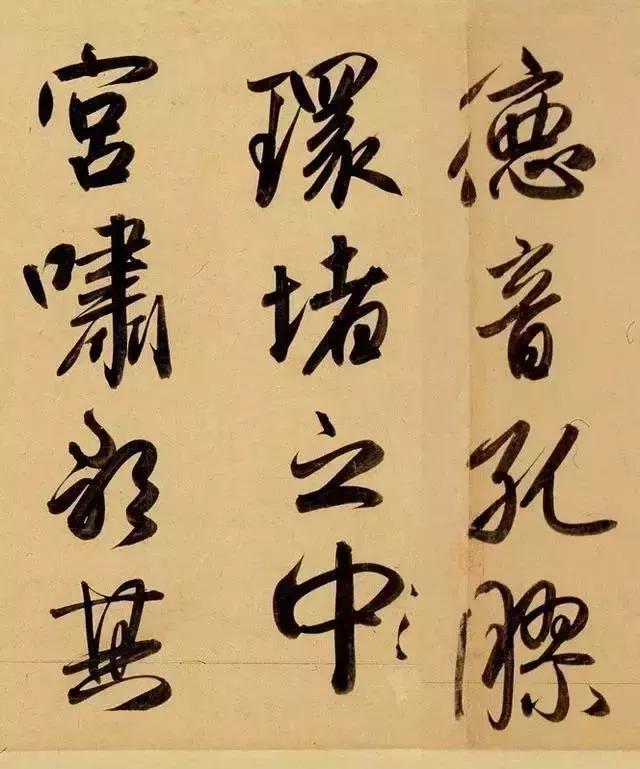 德音孔膠
環堵之中
宮嘯歌其